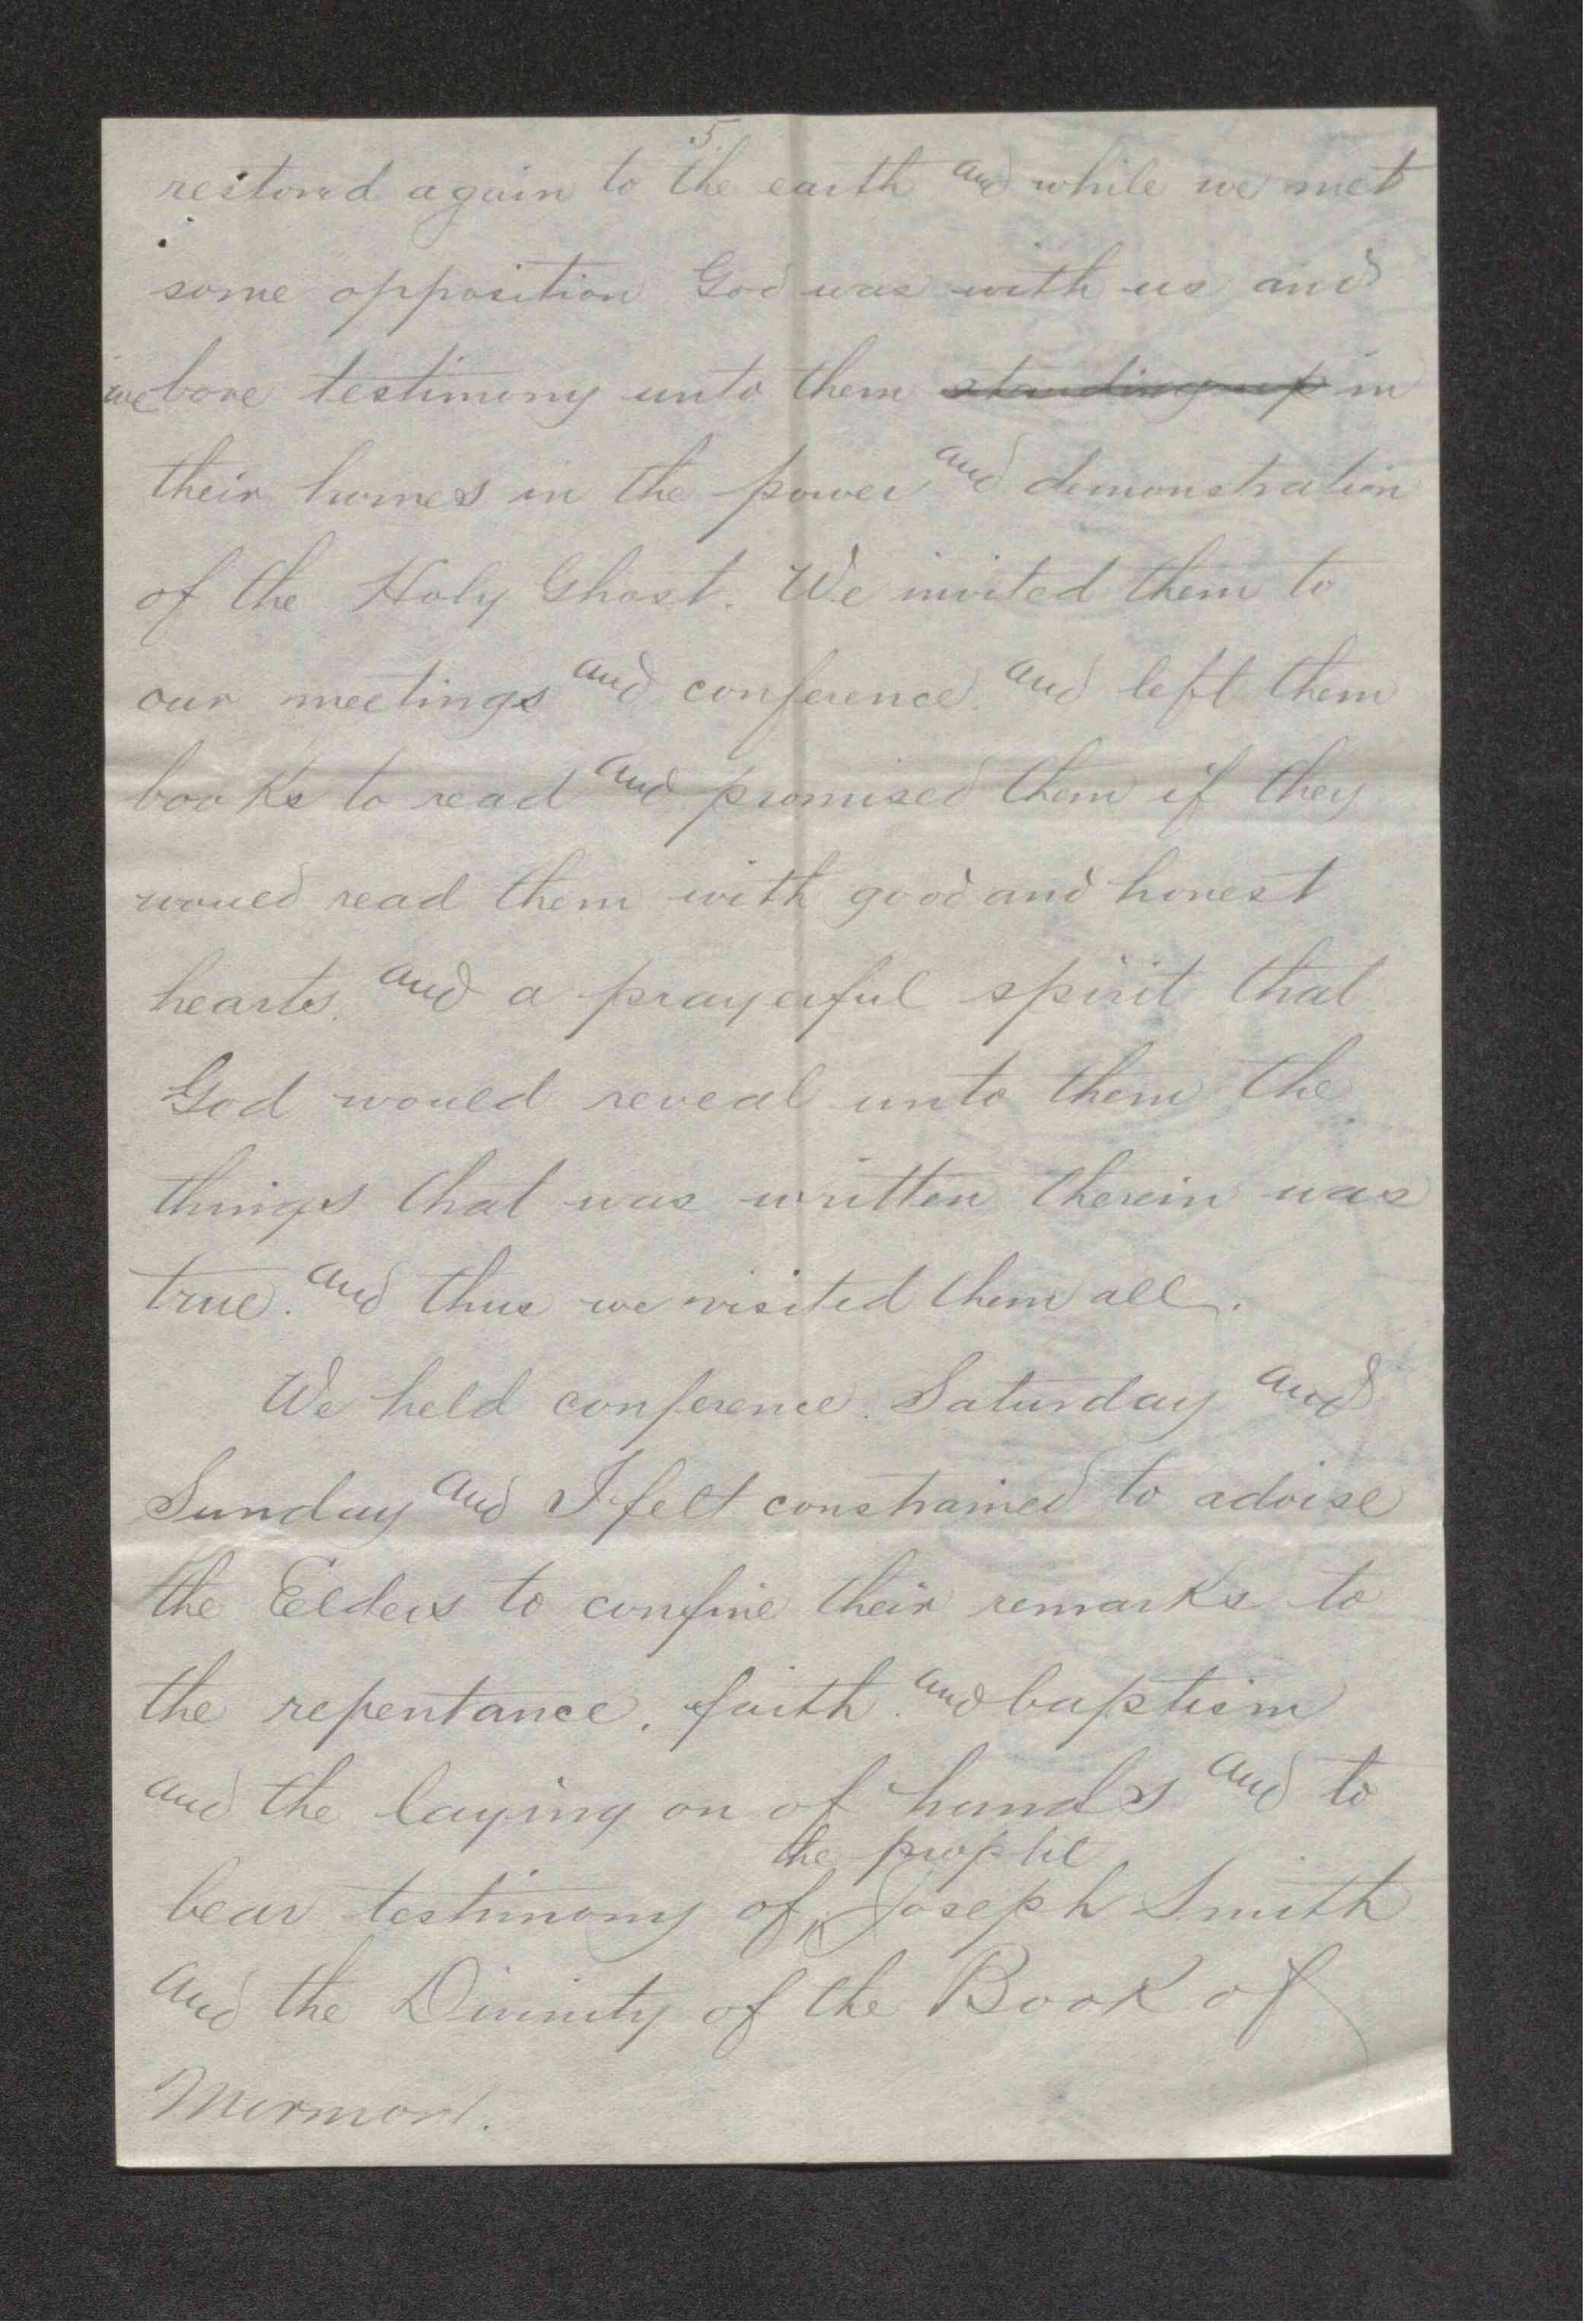 5.
restored again to the earth and while we met
some opposition God was with us and
we bore testimony unto them standing up in
their homes in the power and demonstration
of the Holy Ghost. We invited them to
our meetings and conference. and left them
books to read and promised them if they
would read them with good and honest
hearts. and a prayerful spirit that
God would reveal unto them the
things that was written therein was
true. and thus we visited them all.
We held conference. Saturday and
Sunday and I felt constrained to advise
the Elders to confine their remarks to
the repentance, faith. and baptism
and the laying on of hands and to
the prophet
bear testimony of Joseph Smith
and the Divinity of the Book of
Mormon.